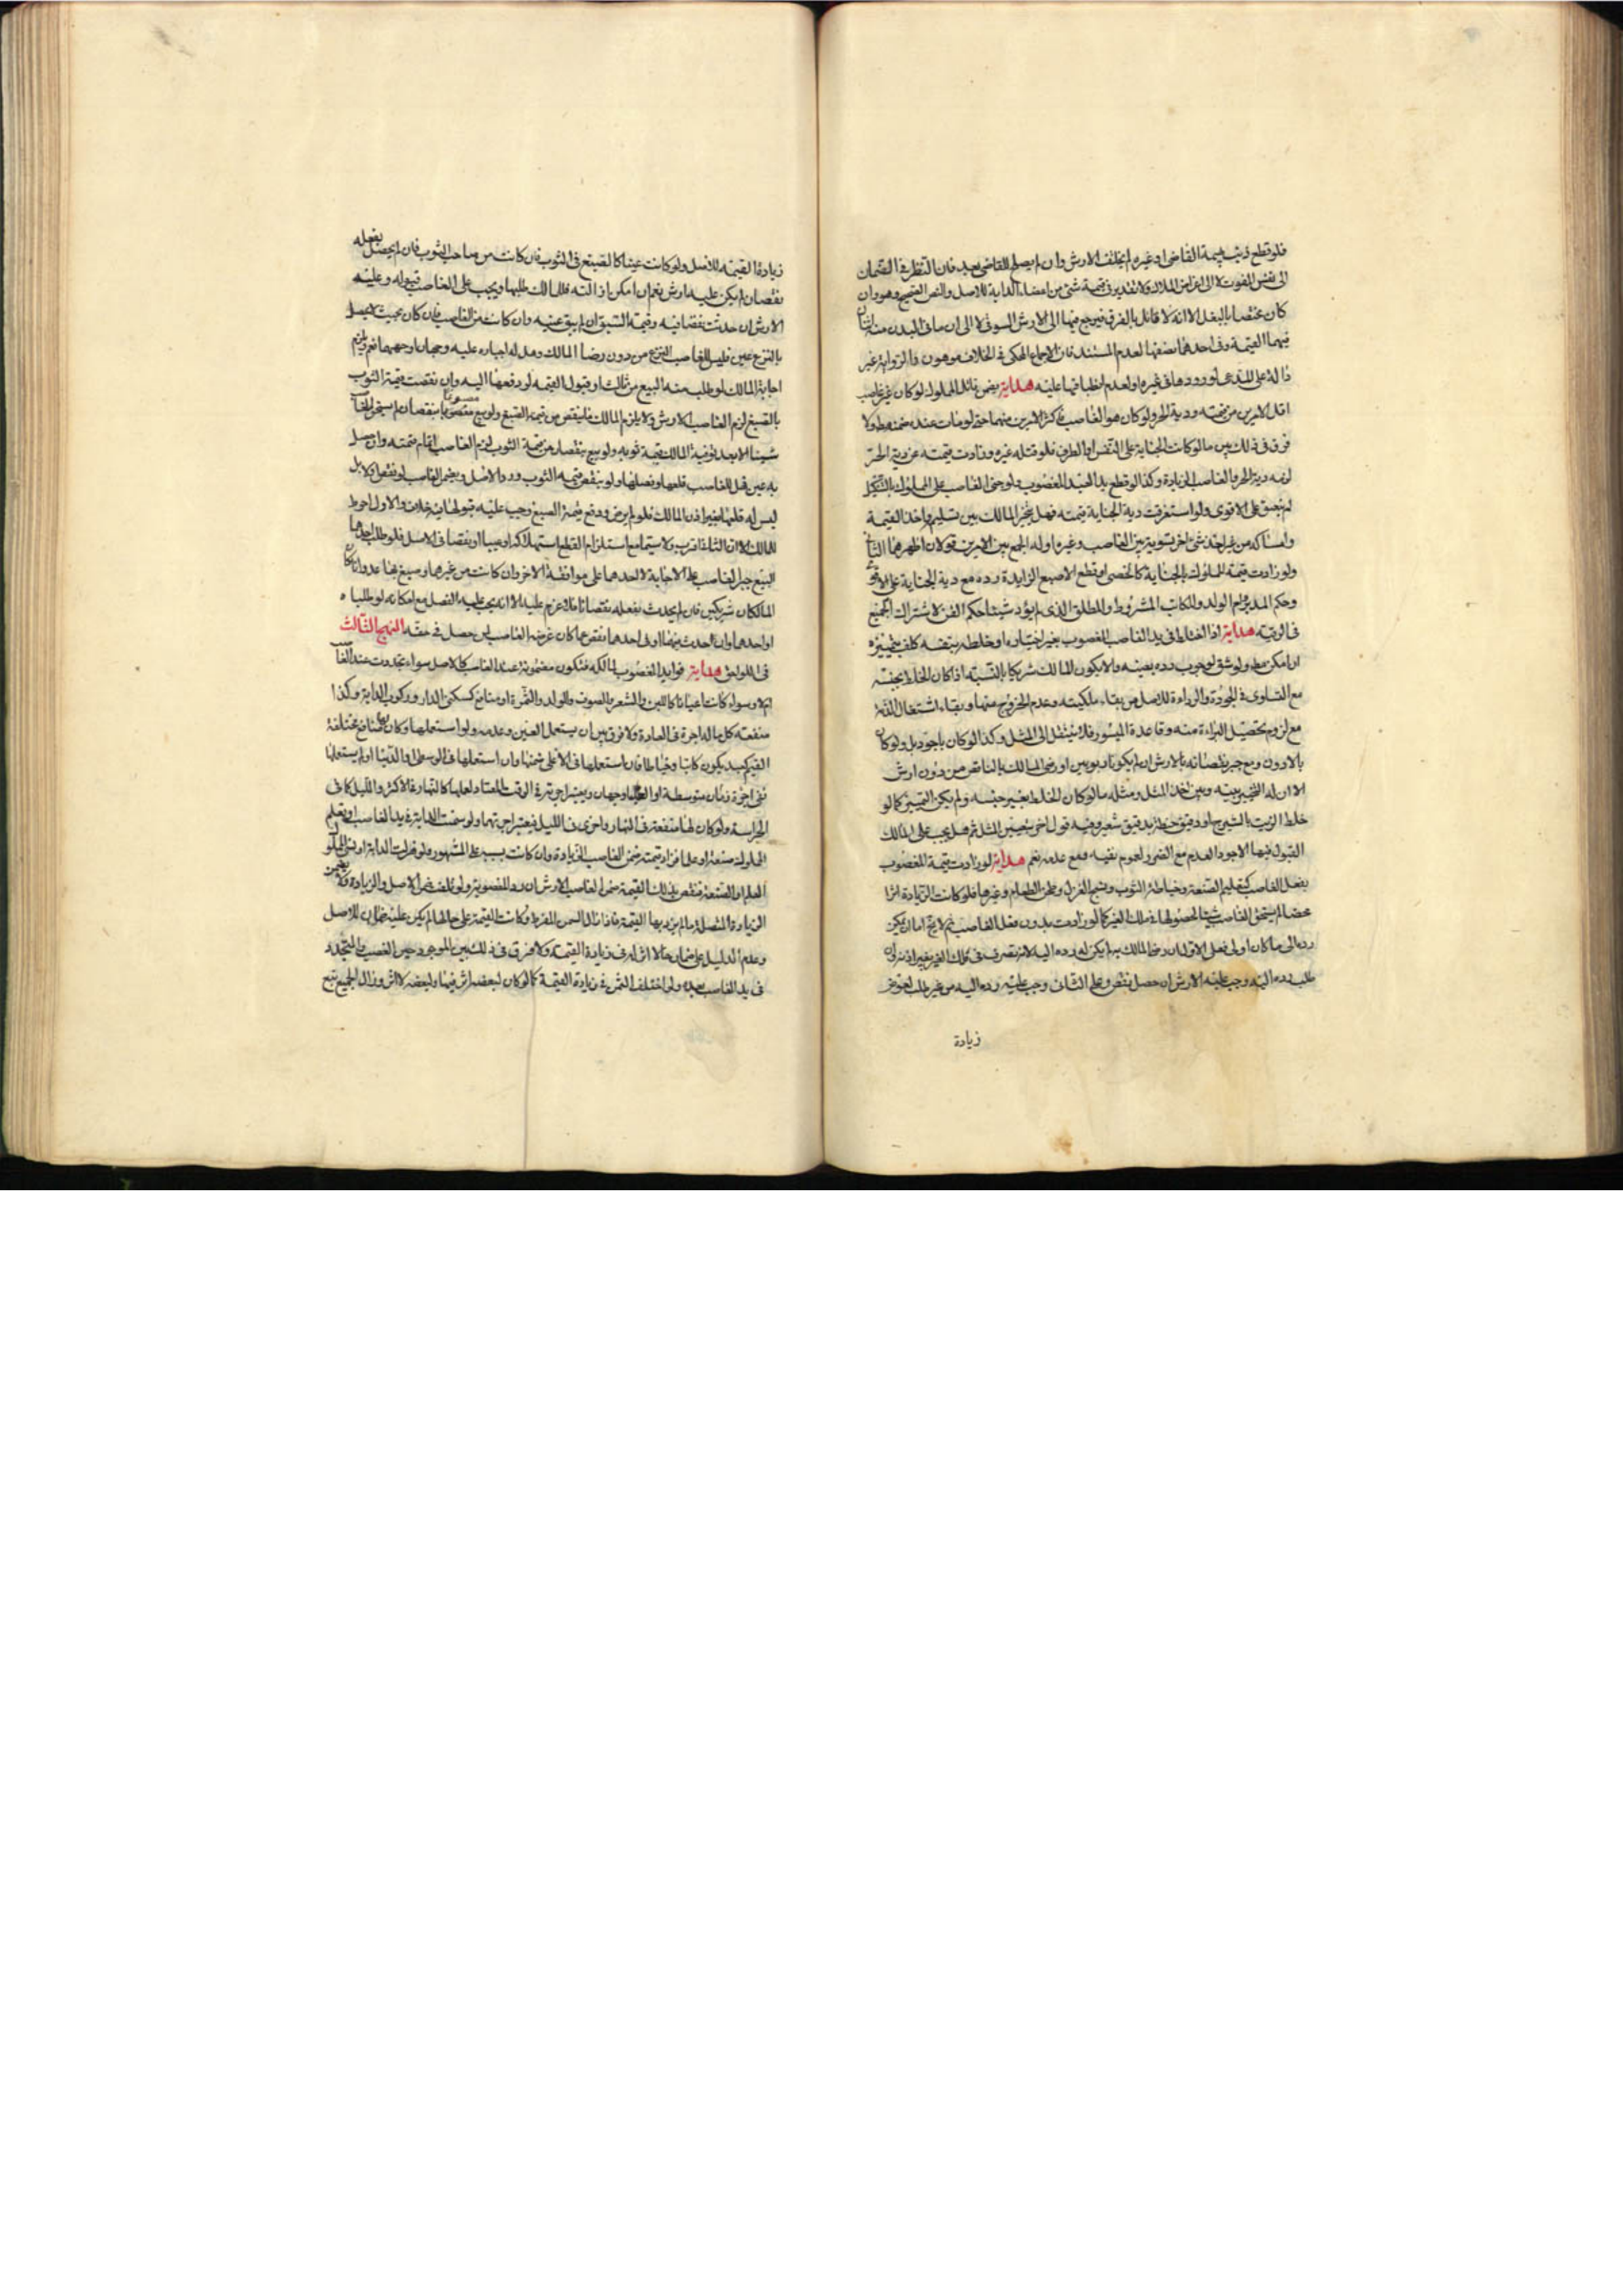 فلو قطع ذنب بهيمة القاضى او غيره لم يختلف الارش وان لم يصلح للقاضى بعد فان النظر فى الضمان
الى نفس الفوت لا الى اغراض الملاك ولا تقدير فى قيمة شئ من اعضاء الدابة للاصل والنص الصحيح وهو وان
كان مختصا بالبغل الا انه لا قائل بالفرق فيرجع فيها الى الارش السوقى لا الى ان ما فى البدن منه اثنان
فيهما القيمة وفى احدهما نصفها لعدم المستند فان الاجماع المحكى فى الخلاف موهون والرواية غير
دالة على المدعى لورودها فى غيره او لعدم انطباقها عليه هداية يضمن قاتل المملوك لو كان غير غاصب
اقل الامرين من قيمته ودية الحر ولو كان هو الغاصب فاكثر الامرين منهما حتى لو مات عنده ضمنه ولا
فرق فى ذلك بين ما لو كانت الجناية على النفس او الطرف فلو قتله غيره وزادت قيمته عن دية الحر
لزمه دية الحر والغاصب الزيادة وكذا لو قطع يد العبد المغصوب ولو جنى الغاصب على المملوك بالتنكيل
لم ينعتق على الاقوى ولو استغرقت دية الجناية قيمته فهل يتخير المالك بين تسليمه واخذ القيمة
وامساكه من غير اخذ شئ اخر تسوية بين الغاصب وغيره اوله الجمع بين الامرين قولان اظهرهما الثانى
ولو زادت قيمة المملوك بالجناية كالخصى او قطع الاصبع الزايدة رده مع دية الجناية على الاقوى
وحكم المدبر وام الولد والمكاتب المشروط والمطلق الذى لم يؤد شيئا حكم القن لاشتراك الجميع
فى الرقية هداية اذا اختلط فى يد الغاصب المغصوب بغير اختياره او خلطه بنفسه كلف بتمييزه
ان امكن ولو شق لوجوب رده بعينه والا يكون المالك شريكا بالنسبة اذا كان الخلط بجنسه
مع التساوى فى الجودة والرداءة للاصل من بقاء ملكيته وعدم الخروج عنها وبقاء اشتغال الذمة
مع لزوم تحصيل البراءة منه وقاعدة الميسور فلا ينتقل الى المثل وكذا لو كان باجود بل ولو كان
بالادون ومع جبر نقصانه بالارش ان لم يكونا ربويين او رضى المالك بالناقص من دون ارش
الا ان له التخيير بينه وبين اخذ المثل ومثله ما لو كان الخلط بغير جنسه ولم يكن التمييز كما لو
خلط الزيت بالشيرج او دقيق حنطة بدقيق شعير وفيه قول اخر بتعيين المثل ثم هل يجب على المالك
القبول فيها الاجود العدم مع الضرر لعموم نفيه ومع عدمه نعم هداية لو زادت قيمة المغصوب
بفعل الغاصب كتعليم الصنعة وخياطة الثوب ونسج الغزل وطحن الطعام وغيرها فلو كانت الزيادة اثرا
محضا لم يستحق الغاصب شيئا لحصولها فى ملك الغير كما لو زادت بدون فعل الغاصب ثم لا يخ اما ان يمكن
رده الى ما كان او لا فعلى الاول ان رضى المالك به لم يكن له رده اليه لانه تصرف فى ملك الغير بغير اذنه وان
طلب رده اليه وجب عليه الارش ان حصل نقص وعلى الثانى وجب عليه رده اليه من غير طلب لعوض
زيادة
زيادة القيمة للاصل ولو كانت عينا كالصبغ فى الثوب فان كانت من صاحب الثوب فان لم يحصل بفعله
نقصان لم يكن عليه ارش نعم ان امكن ازالته فللمالك طلبها ويجب على الغاصب قبوله وعليه
الارش ان حدث نقصا فيه وقيمة الصبغ ان لم يبق عينه وان كانت من الغاصب فان كان بحيث لا يحصل
بالنزع عين فليس للغاصب النزع من دون رضا المالك وهل له اجباره عليه وجهان اوجههما نعم ويلزم
اجابة المالك لو طلب منه البيع من ثالث او قبول القيمة لو دفعها اليه وان نقصت قيمة الثوب
بالصبغ لزم الغاصب الارش ولا يلزم المالك ما ينقص من قيمة الصبغ ولو بيع مصبوغا بنقصان لم يستحق الغاصب
شيئا الا بعد توفية المالك قيمة ثوبه ولو بيع بنقصان من قيمة الثوب لزم الغاصب اتمام قيمته وان حصل
به عين فهل للغاصب قلعها وفصلها ولو بنقص قيمة الثوب ورد الاصل ويضمن الغاصب لو نقص او لا بل
ليس له قلعها بغير اذن المالك فلو لم يرض ودفع قيمة الصبغ وجب عليه قبولها فيه خلاف والاول احوط
للمالك الا ان الثانى اقرب ولا سيما مع استلزام القطع استهلاكه او عيبا او نقصا فى الاصل فلو طلب احدهما
البيع جبر الغاصب على الاجابة لاحدهما على موافقة الاخر وان كانت من غيرهما وصبغ بها عدوانا كان
المالكان شريكين فان لم يحدث بفعله نقصانا فلا غرم عليه الا انه يجب عليه الفصل مع امكانه لو طلباه
او احدهما وان احدث فيهما او فى احدهما نقص عما كان غرمه الغاصب لمن حصل فى حقه النهج الثالث
فى اللواحق هداية فوايد المغصوب لمالكه فتكون مضمونة عند الغاصب كالاصل سواء تجددت عند الغاصب
ام لا وسواء كانت اعيانا كاللبن والشعر والصوف والولد والثمرة او منافع كسكنى الدار وركوب الدابة وكذا
منفعة كل ما له اجرة فى العادة ولا فرق بين ان يستعمل العين وعدمه ولو استعملها وكان لها منافع مختلفة
القيم كعبد يكون كاتبا وخياطا فان استعملها فى الاعلى ضمنها وان استعملها فى الوسطى او الدنيا او لم يستعملها
ففى اجرة زمان متوسطة او العليا وجهان ويعتبر اجرته فى الوقت المعتاد لعملها كالنهار غالبا والليل كما فى
الحراسة ولو كان لها منفعة فى النهار واخرى فى الليل فيعتبر اجرتهما ولو سمنت الدابة فى يد الغاصب او تعلم
المملوك صنعة او علما فزاد قيمته ضمن الغاصب الزيادة وان كانت بسببه على المشهور ولو هزلت الدابة او نسى المملوك
العلم او الصنعة فنقص بذلك القيمة ضمن الغاصب الارش ان رد المغصوبة ولو تلفت ضمن الاصل والزيادة ولا يضمن
الزيادة المتصلة ما لم يزد بها القيمة فاذا زال السمن المفرط وكانت القيمة على حالها لم يكن عليه ضمان للاصل
وعدم الدليل على ضمان ما لا اثر له فى زيادة القيمة ولا فرق فى ذلك بين الموجود حين الغصب والمتجدد
فى يد الغاصب بعده ولو اختلف السمن فى زيادة القيمة كما لو كان لبعضه اثر فيها ولبعضه لا اثر وزال الجميع تبع